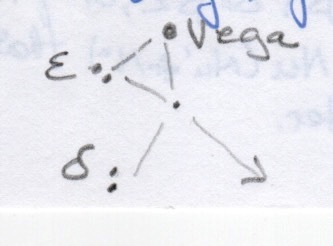 Vega
ε
δ